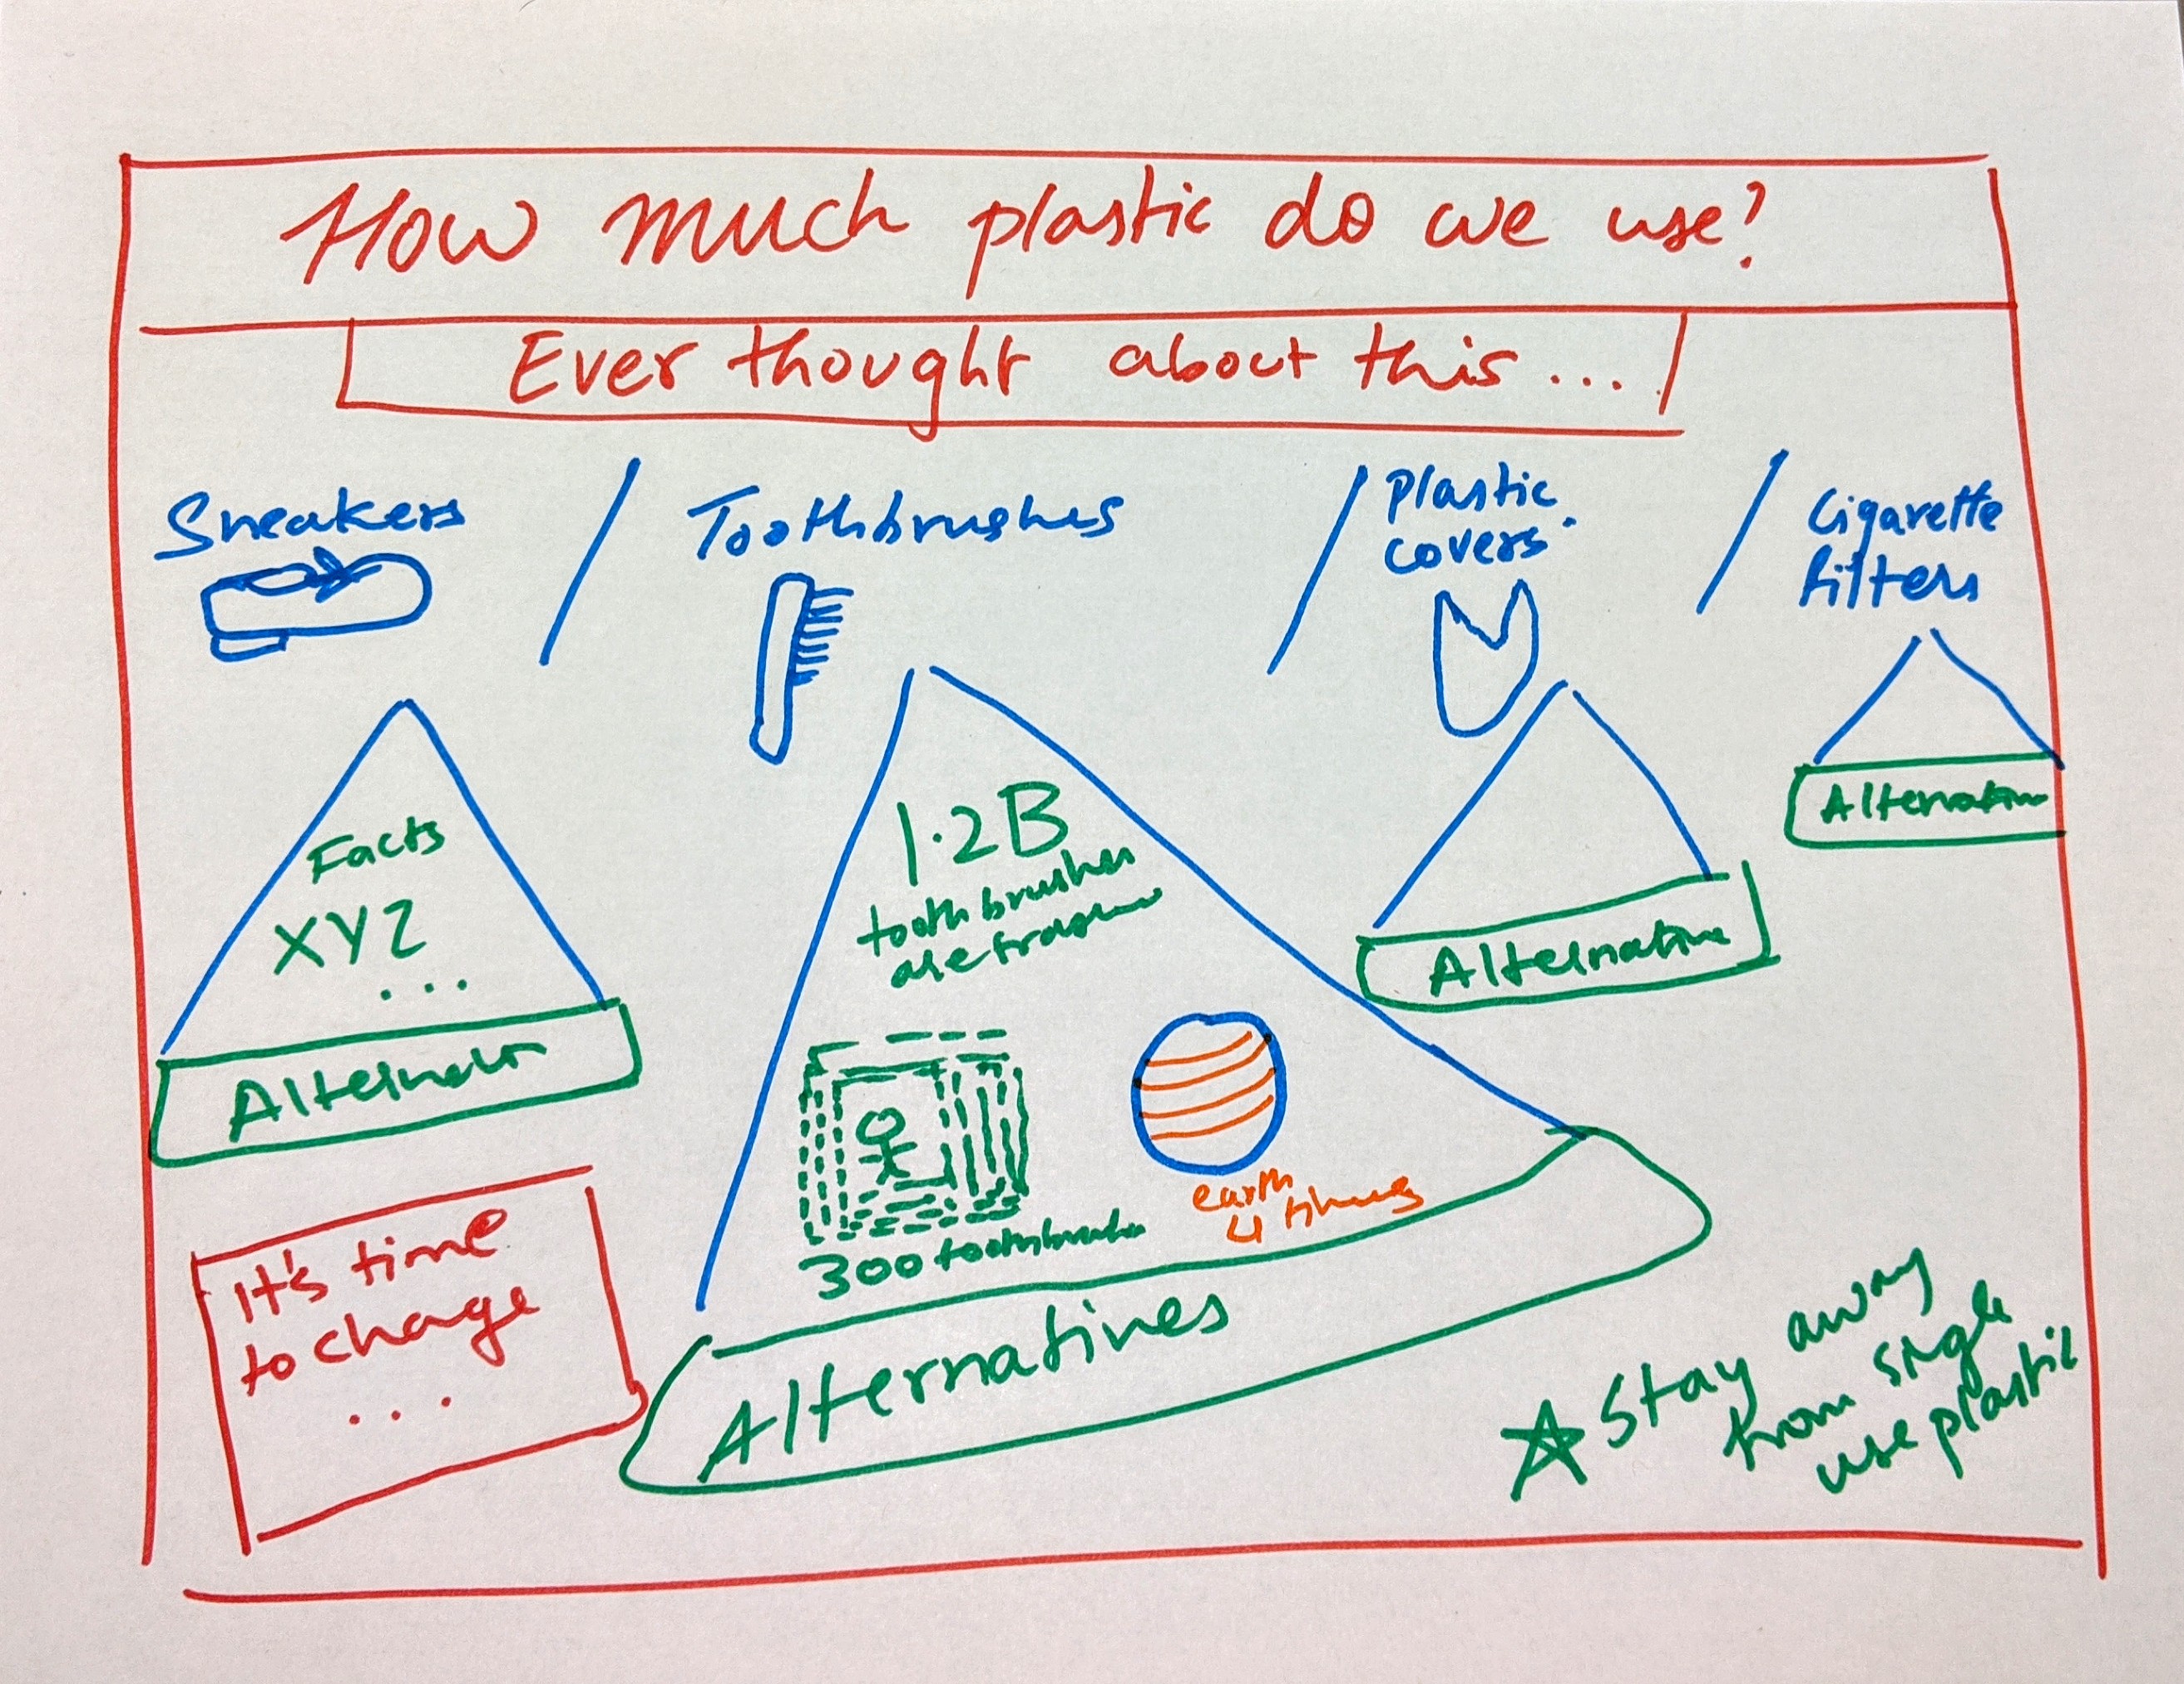 How much plastic do we use?
Ever thought about this...
Sneakers
Toothbrushes
Plastic
covers.
Cigarette
filters
Facts
XYZ
...
Alternative
1.2B
toothbrushes
are
300 toothbrushes
earth
4 times
Alternatives
Alternative
Alternative
It's time
to change
...
Stay away
from single
use plastic